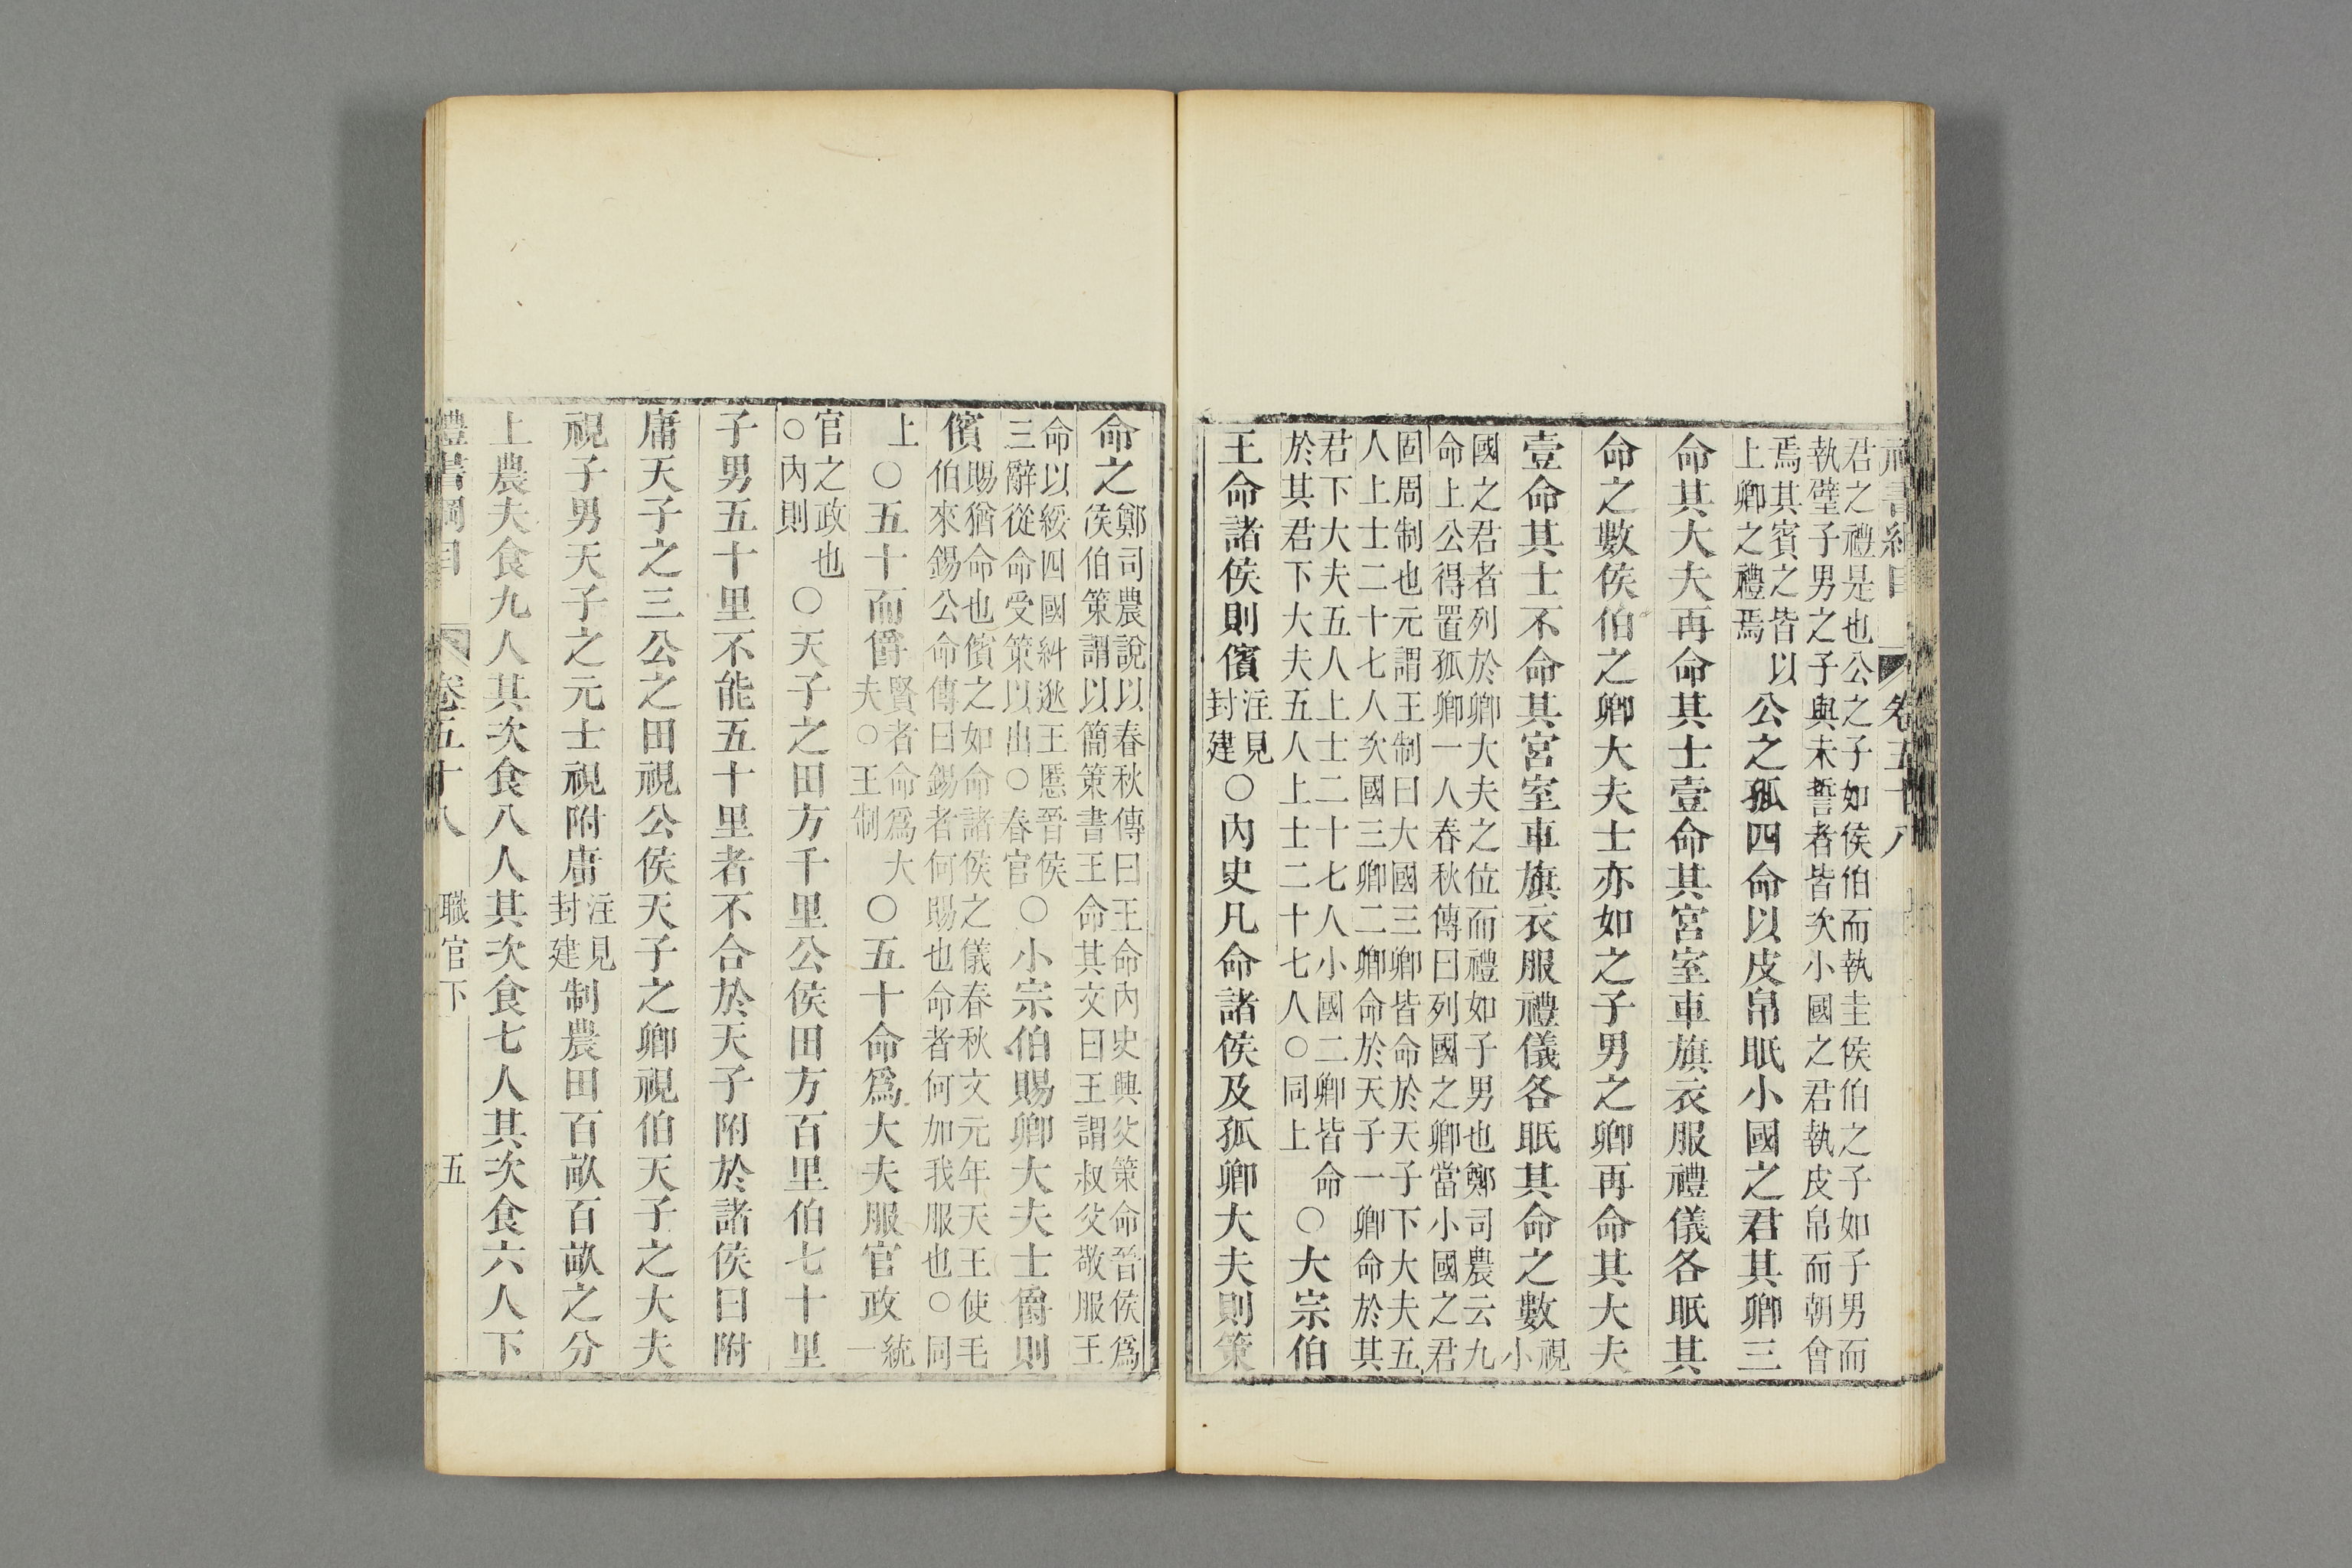 禮書綱目 卷五十八
君之禮是也公之子如侯伯而執圭侯伯之子如子男而
執璧子男之子與未誓者皆次小國之君執皮帛而朝會
焉其賓之皆以上卿之禮焉公之孤四命以皮帛眡小國之君其卿三
命其大夫再命其士壹命其宮室車旗衣服禮儀各眡其
命之數侯伯之卿大夫士亦如之子男之卿再命其大夫
壹命其士不命其宮室車旗衣服禮儀各眡其命之數視小
國之君者列於卿大夫之位而禮如子男也鄭司農云九
命上公得置孤卿一人春秋傳曰列國之卿當小國之君
固周制也元謂王制曰大國三卿皆命於天子下大夫五
人上士二十七人次國三卿二卿命於天子一卿命於其
君下大夫五人上士二十七人小國二卿皆命於其君下大夫五人上士二十七人○同上○大宗伯
王命諸侯則儐注見封建○內史凡命諸侯及孤卿大夫則策
命之鄭司農說以春秋傳曰王命內史興父策命晉侯爲侯伯策謂以簡策書王命其文曰王謂叔父敬服王
命以綏四國糾逖王慝晉侯三辭從命受策以出○春官○小宗伯賜卿大夫士爵則
儐賜猶命也儐之如命諸侯之儀春秋文元年天王使毛伯來錫公命傳曰錫者何賜也命者何加我服也○同
上○五十而爵賢者命爲大夫○王制○五十命爲大夫服官政統一
官之政也○內則○天子之田方千里公侯田方百里伯七十里
子男五十里不能五十里者不合於天子附於諸侯曰附
庸天子之三公之田視公侯天子之卿視伯天子之大夫
視子男天子之元士視附庸注見封建制農田百畝百畝之分
上農夫食九人其次食八人其次食七人其次食六人下
禮書綱目 卷五十八 職官下 五